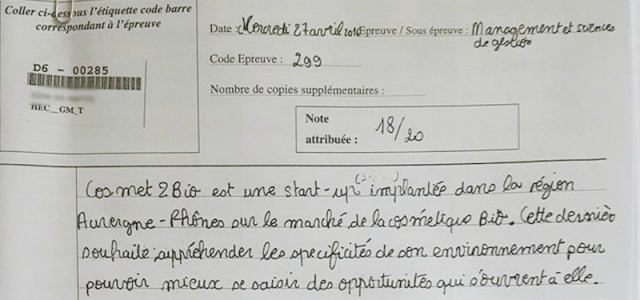 Coller ci-dessus l'étiquette code barre
correspondant à l'épreuve
D6 - 00285
HEC__GM_T
Date : Mercredi 27 avril Epreuve / Sous épreuve : Management et sciences
de gestion
Code Epreuve : 299
Nombre de copies supplémentaires :
Note
attribuée : 18/20
Cosmet 2Bio est une start-up implantée dans la région
Auvergne-Rhônes sur le marché de la cosmetique Bio. Cette dernièr
souhaite appréhender les specificités de son environnement pour
pouvoir mieux se saisir des opportunites qui s'ouvrent à elle.